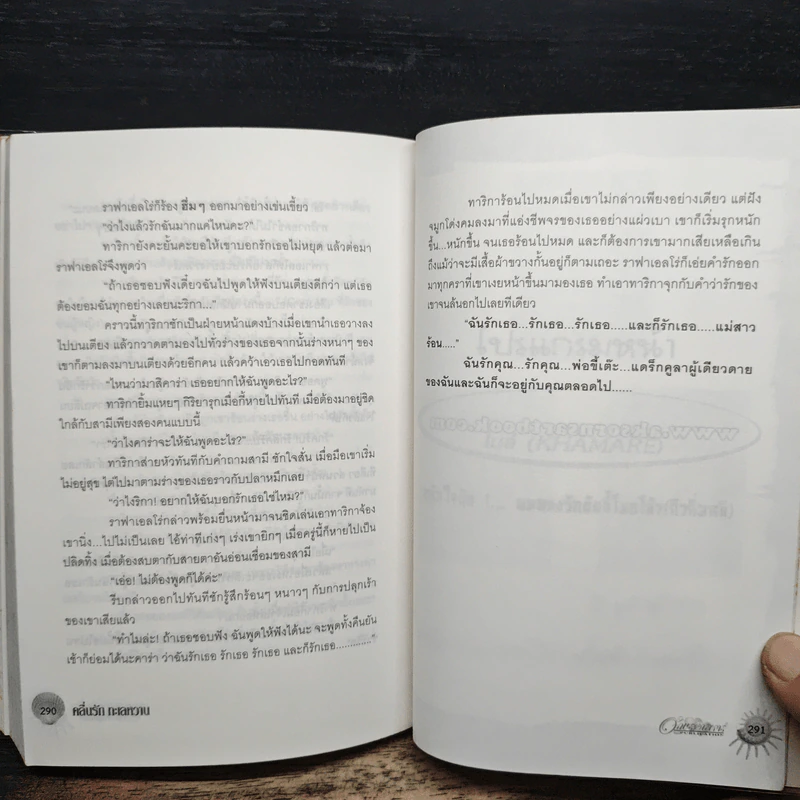 ราฟาเอลโร่ก็ร้อง ฮึ่มๆ ออกมาอย่างเข่นเขี้ยว
“ว่าไงแล้วรักฉันมากแค่ไหนคะ?”
ทาริกายังคะยั้นคะยอให้เขาบอกรักเธอไม่หยุด แล้วต่อมา
ราฟาเอลโร่จึงพูดว่า
“ถ้าเธอชอบฟังเดี๋ยวฉันไปพูดให้ฟังบนเตียงดีกว่า แต่เธอ
ต้องยอมฉันทุกอย่างเลยนะริกา...”
คราวนี้ทาริกาชักเป็นฝ่ายหน้าแดงบ้างเมื่อเขานำเธอวางลง
ไปบนเตียง แล้วกวาดตามองไปทั่วร่างของเธอจากนั้นร่างหนาๆ ของ
เขาก็ตามลงมาบนเตียงด้วยอีกคน แล้วคว้าเอวเธอไปกอดทันที
“ไหนว่ามาสิคาร่า เธออยากให้ฉันพูดอะไร?”
ทาริกายิ้มแหยๆ กิริยารุกเมื่อกี้หายไปทันที เมื่อต้องมาอยู่ชิด
ใกล้กับสามีเพียงสองคนแบบนี้
“ว่าไงคาร่าจะให้ฉันพูดอะไร?”
ทาริกาส่ายหัวทันทีกับคำถามสามี ชักใจสั่น เมื่อมือเขาเริ่ม
ไม่อยู่สุข ไต่ไปมาตามร่างของเธอราวกับปลาหมึกเลย
“ว่าไงริกา! อยากให้ฉันบอกรักเธอใช่ไหม?”
ราฟาเอลโร่กล่าวพร้อมยื่นหน้ามาจนชิดเล่นเอาทาริกาจ้อง
เขานิ่ง...ไปไม่เป็นเลย ไอ้ท่าที่เก่งๆ เร่งเขายิกๆ เมื่อครู่นี้ก็หายไปเป็น
ปลิดทิ้ง เมื่อต้องสบตากับสายตาอันอ่อนเชื่อมของสามี
“เอ่อ! ไม่ต้องพูดก็ได้ค่ะ”
รีบกล่าวออกไปทันทีชักรู้สึกร้อนๆ หนาวๆ กับการปลุกเร้า
ของเขาเสียแล้ว
“ทำไมล่ะ! ถ้าเธอชอบฟัง ฉันพูดให้ฟังได้นะ จะพูดทั้งคืนยัน
เช้าก็ย่อมได้นะคาร่า ว่าฉันรักเธอ รักเธอ รักเธอ และก็รักเธอ.............”
290 คลื่นรัก ทะเลหวาน
ทาริการ้อนไปหมดเมื่อเขาไม่กล่าวเพียงอย่างเดียว แต่ฝัง
จมูกโด่งคมลงมาที่แอ่งชีพจรของเธออย่างแผ่วเบา เขาก็เริ่มรุกหนัก
ขึ้น...หนักขึ้น จนเธอร้อนไปหมด และก็ต้องการเขามากเสียเหลือเกิน
ถึงแม้ว่าจะมีเสื้อผ้าขวางกั้นอยู่ก็ตามเถอะ ราฟาเอลโร่ก็เอ่ยคำรักออก
มาทุกคราที่เขาเงยหน้าขึ้นมามองเธอ ทำเอาทาริกาจุกกับคำว่ารักของ
เขาจนล้นอกไปเลยทีเดียว
“ฉันรักเธอ...รักเธอ...รักเธอ.....และก็รักเธอ.....แม่สาว
ร้อน.....”
ฉันรักคุณ...รักคุณ...พ่อขี้เต๊ะ...แดร็กคูลาผู้เดียวดาย
ของฉันและฉันก็จะอยู่กับคุณตลอดไป......
291